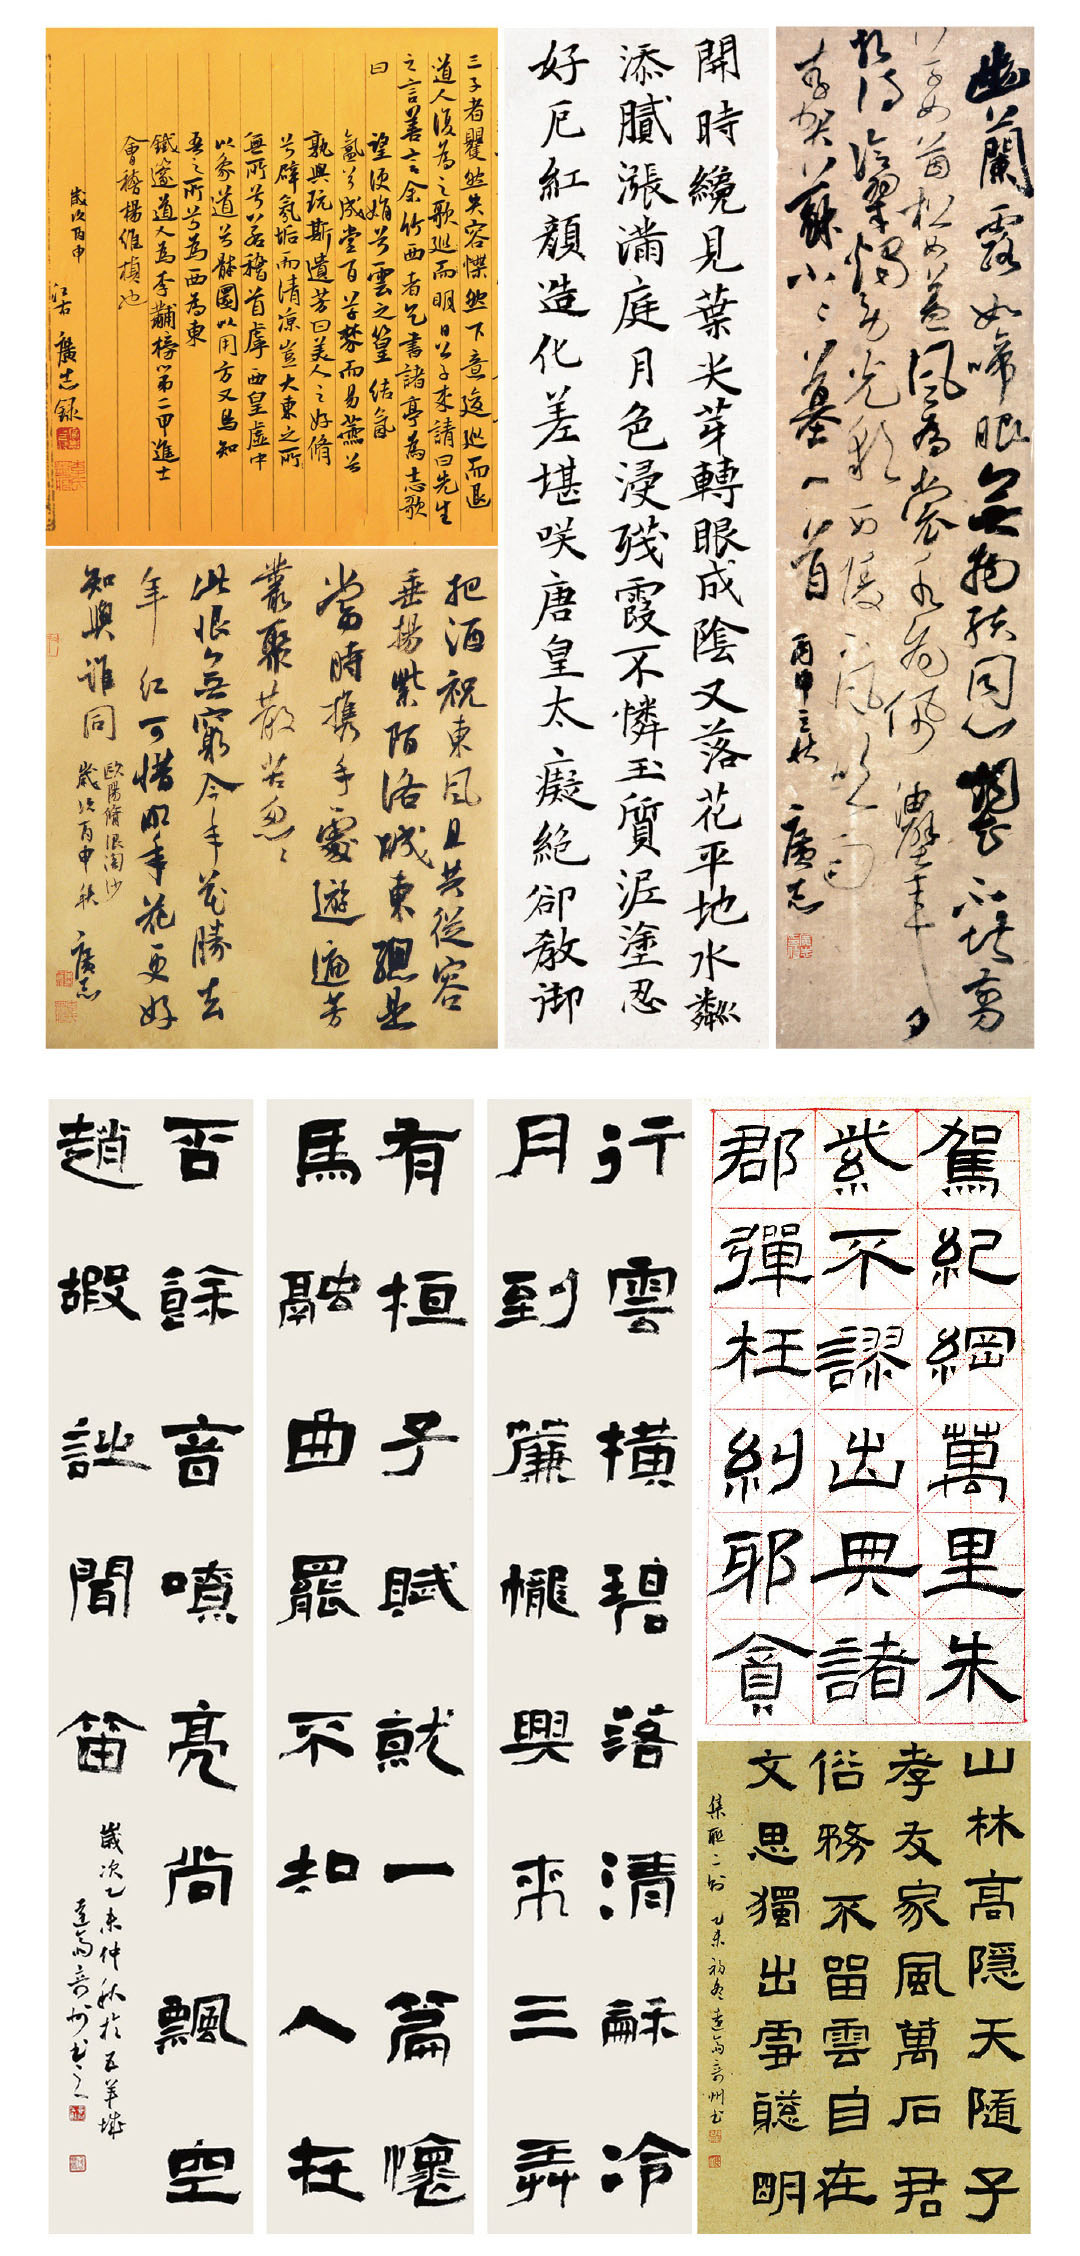 幽蘭露如啼眼無物結同心煙花不堪剪
草如茵松如蓋風為裳水為佩油壁車夕
相待冷翠燭勞光彩西陵下風吹雨
李賀蘇小小墓一首 丙申立秋 廣志
開時纔見葉尖芽轉眼成陰又落花平地水粼
添膩漲滿庭月色浸殘霞不憐玉質泥塗忍
好厄紅顏造化差堪咲唐皇太癡絕卻教御
三子者矍然失容慄然下意逡巡而退
道人復為之歌巡而明日公子來請曰先生
之言善言余竹西者乞書諸亭為志歌
曰
望便娟兮雲之篁 結氤
氳兮成堂百草棼而易蕪兮
孰與玩斯遺芳曰美人之好脩
兮辟氛垢而清涼豈大東之所
無所兮若稽首虖西皇虛中
以象道兮體圜以用方又烏知
吾之所兮為西為東
鐵邃道人為李黼榜第二甲進士
會稽楊維楨也
歲次丙申 江右 廣志錄
把酒祝東風且共從容
垂楊紫陌洛城東總是
當時攜手處遊遍芳
叢聚散苦匆匆
此恨無窮今年花勝去
年紅可惜明年花更好
知與誰同 歐陽脩浪淘沙
歲次丙申秋 廣志
駕紀綱萬里朱
紫不謬出典諸
郡彈枉糾邪貪
行雲橫碧落清冷
月到簾櫳興來三弄
有桓子賦就一篇懷
馬融曲罷不知人在
否餘音嘹亮尚飄空
趙嘏詠聞笛
歲次乙未仲秋於五羊城
達高奇州書之
山林高隱天隨子
孝友家風萬石君
俗務不留雲自在
文思獨出雪聰明
集聯二則 乙未初冬達高奇州書